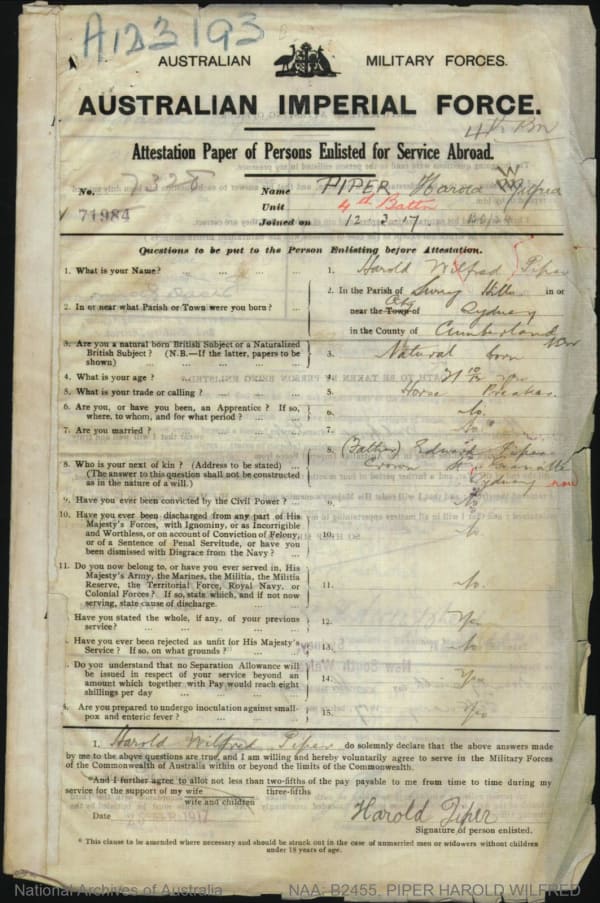 A123193
AUSTRALIAN MILITARY FORCES.
AUSTRALIAN IMPERIAL FORCE.
4th Bn
Attestation Paper of Persons Enlisted for Service Abroad.
No. 7328 Name PIPER Harold Wilfred
Unit 4th Battn
71984 Joined on 12 3 17
Questions to be put to the Person Enlisting before Attestation.
1. What is your Name? ... 1. Harold Wilfred Piper
2. In or near what Parish or Town were you born? ... 2. In the Parish of Surrey Hills in or
near the Town of City Sydney
in the County of Cumberland NSW
3. Are you a natural born British Subject or a Naturalized
British Subject? (N.B.—If the latter, papers to be
shown) 3. Natural born
4. What is your age? ... 4. 21 10/12 yrs
5. What is your trade or calling? ... 5. Horse Breaker
6. Are you, or have you been, an Apprentice? If so,
where, to whom, and for what period? ... 6. No
7. Are you married? ... 7. No
8. Who is your next of kin? (Address to be stated) ...
(The answer to this question shall not be construed
as in the nature of a will.) 8. (Father) Edward Piper
Crown St
Sydney NSW
9. Have you ever been convicted by the Civil Power? ... 9. No
10. Have you ever been discharged from any part of His
Majesty's Forces, with Ignominy, or as Incorrigible
and Worthless, or on account of Conviction of Felony,
or of a Sentence of Penal Servitude, or have you
been dismissed with Disgrace from the Navy? ... 10. No
11. Do you now belong to, or have you ever served in, His
Majesty's Army, the Marines, the Militia, the Militia
Reserve, the Territorial Force, Royal Navy, or
Colonial Forces? If so, state which, and if not now
serving, state cause of discharge. 11. No.
Have you stated the whole, if any, of your previous
service? ... 12. Yes
Have you ever been rejected as unfit for His Majesty's
Service? If so, on what grounds? ... 13. No
Do you understand that no Separation Allowance will
be issued in respect of your service beyond an
amount which together with Pay would reach eight
shillings per day ... 14. Yes
Are you prepared to undergo inoculation against small-
pox and enteric fever? ... 15. Yes
I, Harold Wilfred Piper do solemnly declare that the above answers made
by me to the above questions are true, and I am willing and hereby voluntarily agree to serve in the Military Forces
of the Commonwealth of Australia within or beyond the limits of the Commonwealth.
*And I further agree to allot not less than two-fifths of the pay payable to me from time to time during my
three-fifths
service for the support of my wife
wife and children
Harold Piper
Date 1917
Signature of person enlisted.
* This clause to be amended where necessary and should be struck out in the case of unmarried men or widowers without children
under 18 years of age.
National Archives of Australia NAA: B2455, PIPER HAROLD WILFRED